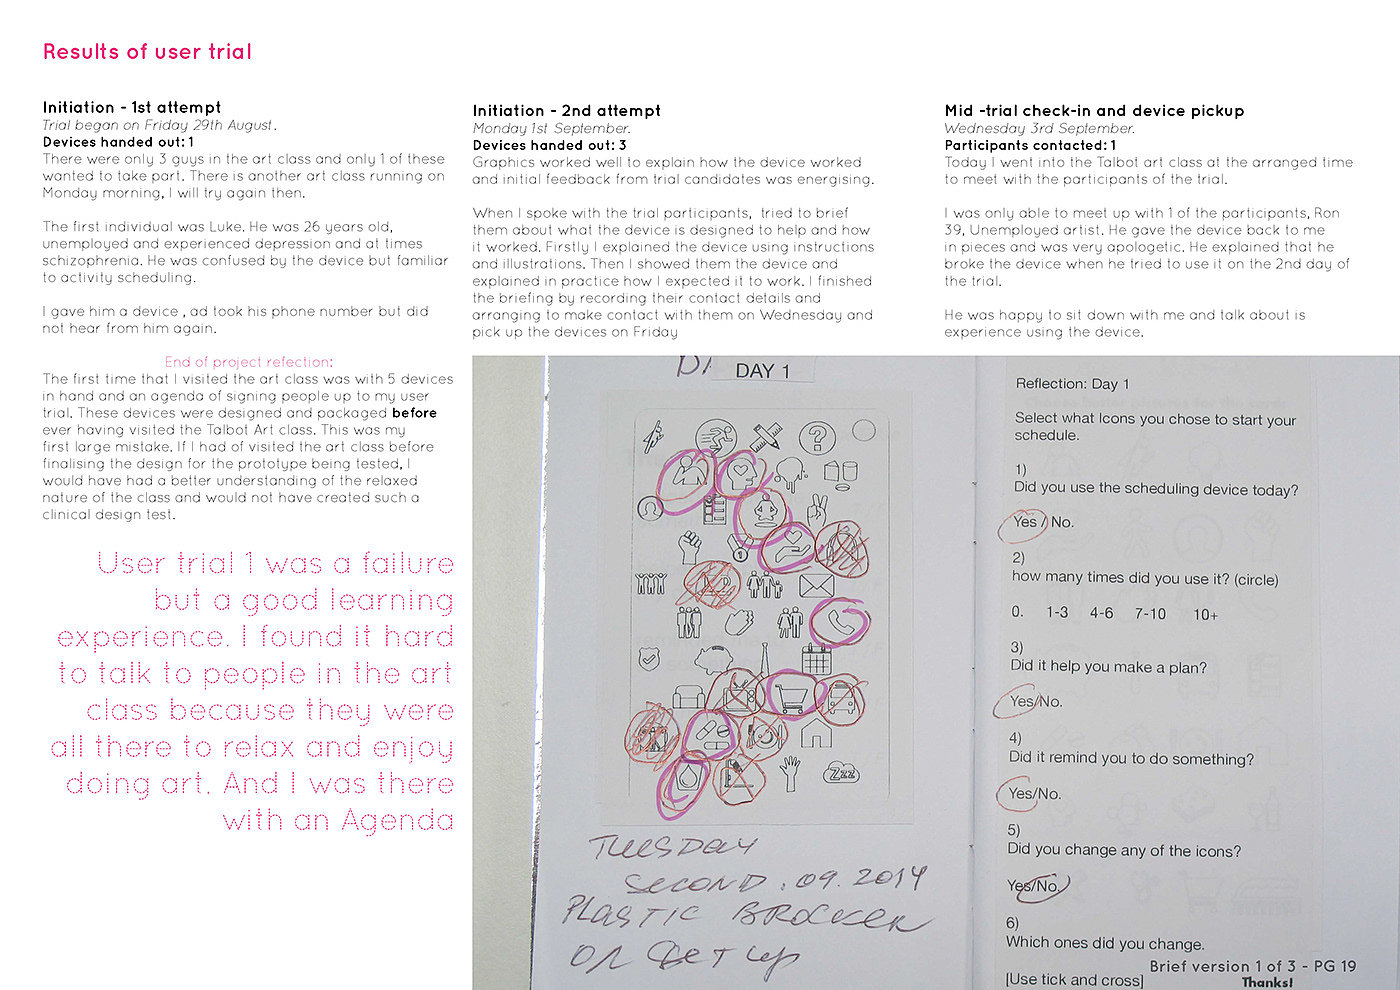 Results of user trial
Initiation - 1st attempt
Trial began on Friday 29th August.
Devices handed out: 1
There were only 3 guys in the art class and only 1 of these
wanted to take part. There is another art class running on
Monday morning, I will try again then.
The first individual was Luke. He was 26 years old,
unemployed and experienced depression and at times
schizophrenia. He was confused by the device but familiar
to activity scheduling.
I gave him a device , ad took his phone number but did
not hear from him again.
End of project refection:
The first time that I visited the art class was with 5 devices
in hand and an agenda of signing people up to my user
trial. These devices were designed and packaged before
ever having visited the Talbot Art class. This was my
first large mistake. If I had of visited the art class before
finalising the design for the prototype being tested, I
would have had a better understanding of the relaxed
nature of the class and would not have created such a
clinical design test.
User trial 1 was a failure
but a good learning
experience. I found it hard
to talk to people in the art
class because they were
all there to relax and enjoy
doing art. And I was there
with an Agenda
Initiation - 2nd attempt
Monday 1st September.
Devices handed out: 3
Graphics worked well to explain how the device worked
and initial feedback from trial candidates was energising.
When I spoke with the trial participants,  tried to brief
them about what the device is designed to help and how
it worked. Firstly I explained the device using instructions
and illustrations. Then I showed them the device and
explained in practice how I expected it to work. I finished
the briefing by recording their contact details and
arranging to make contact with them on Wednesday and
pick up the devices on Friday
Mid -trial check-in and device pickup
Wednesday 3rd September.
Participants contacted: 1
Today I went into the Talbot art class at the arranged time
to meet with the participants of the trial.
I was only able to meet up with 1 of the participants, Ron
39, Unemployed artist. He gave the device back to me
in pieces and was very apologetic. He explained that he
broke the device when he tried to use it on the 2nd day of
the trial.
He was happy to sit down with me and talk about is
experience using the device.
DAY 1
Zzz
TUESDAY
SECOND . 09. 2014
PLASTIC BROCKEN
ON SET UP
Reflection: Day 1
Select what Icons you chose to start your
schedule.
1)
Did you use the scheduling device today?
Yes / No.
2)
how many times did you use it? (circle)
0. 1-3 4-6 7-10 10+
3)
Did it help you make a plan?
Yes/No.
4)
Did it remind you to do something?
Yes/No.
5)
Did you change any of the icons?
Yes/No.
6)
Which ones did you change.
[Use tick and cross]
Brief version 1 of 3 - PG 19
Thanks!